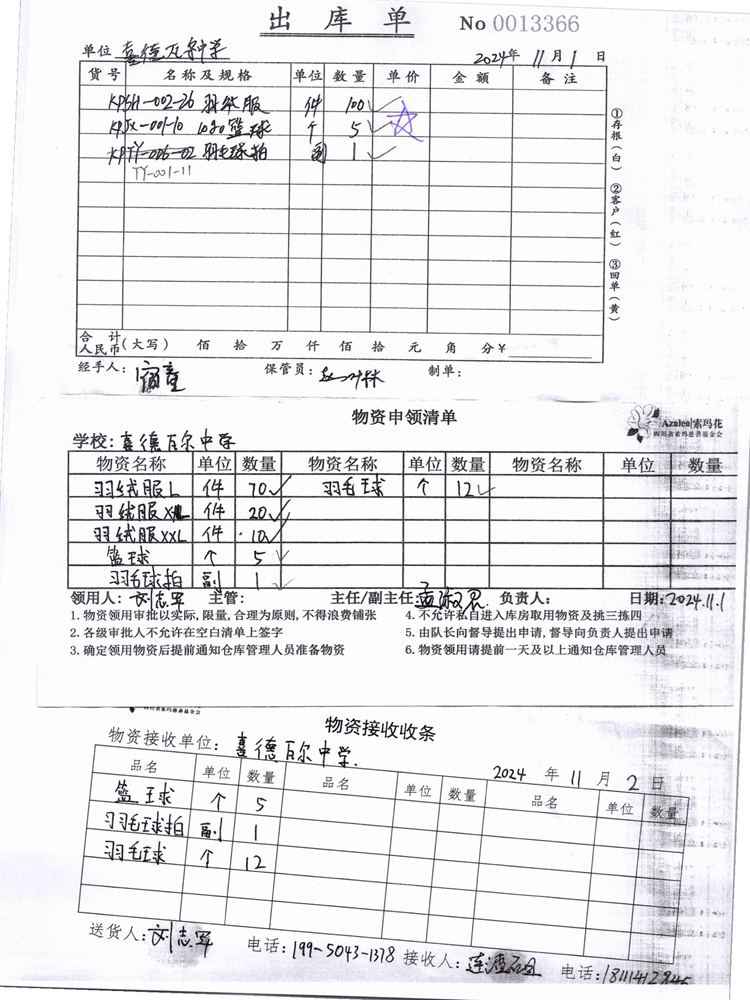 出 库 单
No 0013366
单位 喜德瓦尔中学 2024年 11月 1日
货号 名称及规格 单位 数量 单价 金额 备注
KPSH-002-26 羽绒服 件 100
KPJX-001-10 logo篮球 个 5
KPTY-006-02 羽毛球拍 副 1
TY-001-11
合计人民币(大写) 佰 拾 万 仟 佰 拾 元 角 分¥
经手人: 保管员: 制单:
①存根(白) ②客户(红) ③回单(黄)
物资申领清单
Azalea|索玛花
四川省索玛慈善基金会
学校: 喜德瓦尔中学
物资名称 单位 数量 物资名称 单位 数量 物资名称 单位 数量
羽绒服L 件 70 羽毛球 个 12
羽绒服XL 件 20
羽绒服XXL 件 10
篮球 个 5
羽毛球拍 副 1
领用人: 刘志军 主管: 主任/副主任: 负责人: 日期: 2024.11.1
1. 物资领用审批以实际,限量,合理为原则,不得浪费铺张
2. 各级审批人不允许在空白清单上签字
3. 确定领用物资后提前通知仓库管理人员准备物资
4. 不允许私自进入库房取用物资及挑三拣四
5. 由队长向督导提出申请,督导向负责人提出申请
6. 物资领用请提前一天及以上通知仓库管理人员
物资接收收条
物资接收单位: 喜德瓦尔中学.
2024 年 11 月 2 日
品名 单位 数量 品名 单位 数量 品名 单位 数量
篮球 个 5
羽毛球拍 副 1
羽毛球 个 12
送货人: 刘志军 电话: 199-5043-1378 接收人: 电话: